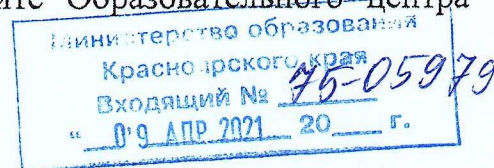 те Образовательного центра
Министерство образования
Красноярского края
Входящий № 75-05979
" 09 АПР 2021 20___ г.